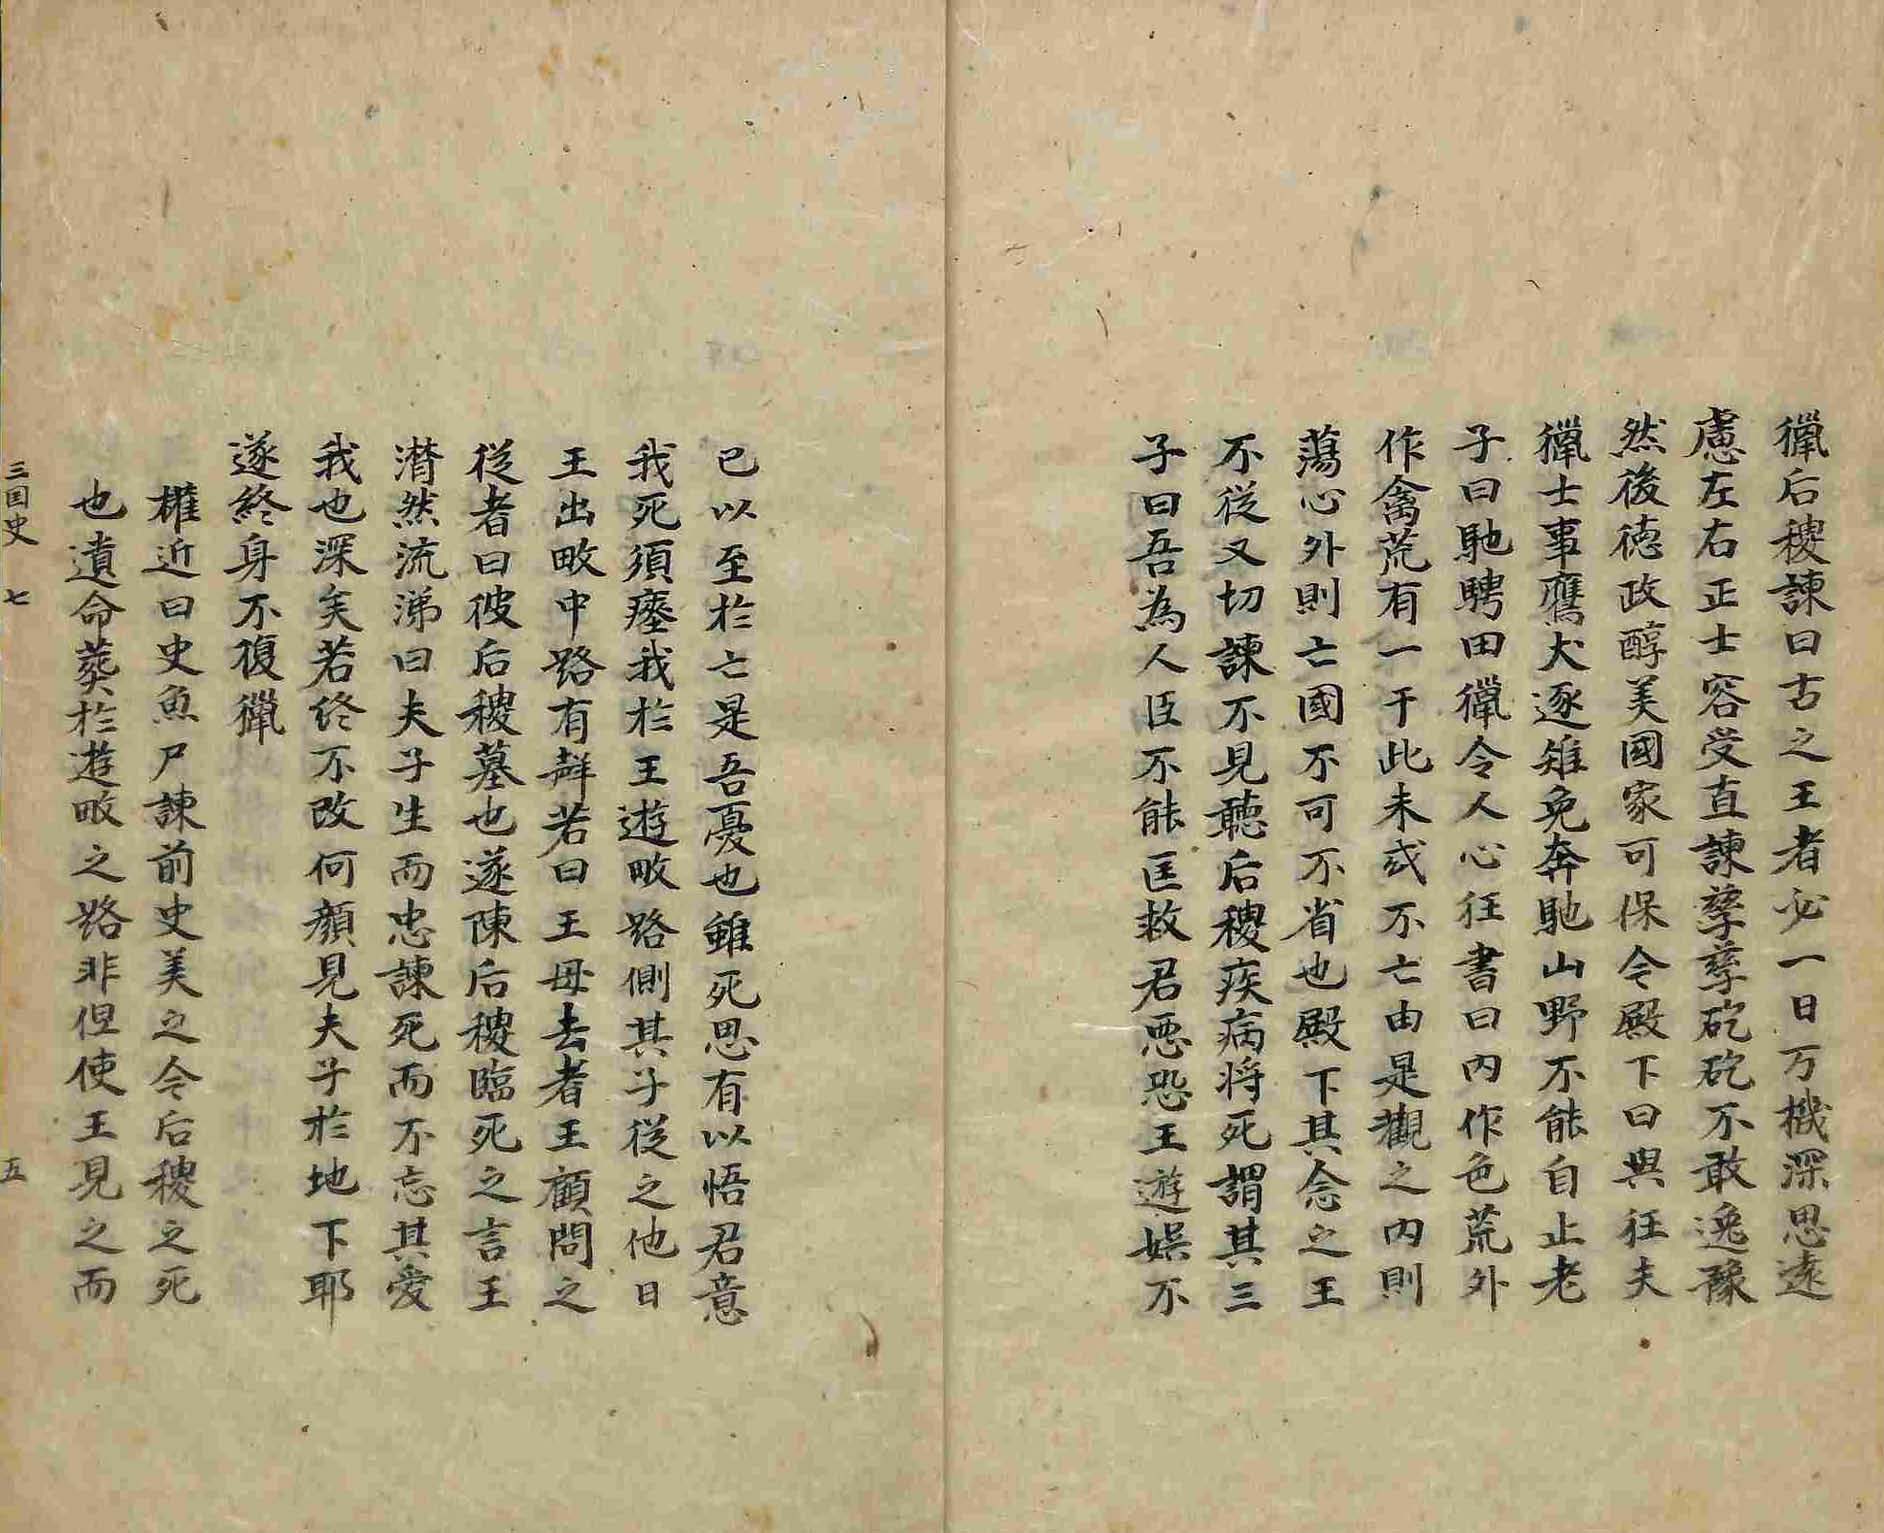 獵后稷諫曰古之王者必一日万機深思遠
慮左右正士容受直諫孳孳矻矻不敢逸豫
然後德政醇美國家可保今殿下曰與狂夫
獵士事鷹犬逐雉兔奔馳山野不能自止老
子曰馳騁田獵令人心狂書曰內作色荒外
作禽荒有一于此未或不亡由是觀之內則
蕩心外則亡國不可不省也殿下其念之王
不從又切諫不見聽后稷疾病將死謂其三
子曰吾為人臣不能匡救君惡恐王遊娛不
已以至於亡是吾憂也雖死思有以悟君意
我死須瘞我於王遊畋路側其子從之他日
王出畋中路有聲若曰王毋去者王顧問之
從者曰彼后稷墓也遂陳后稷臨死之言王
潸然流涕曰夫子生而忠諫死而不忘其愛
我也深矣若終不改何顏見夫子於地下耶
遂終身不復獵
權近曰史魚尸諫前史美之今后稷之死
也遺命葬於遊畋之路非但使王見之而
三国史 七 五